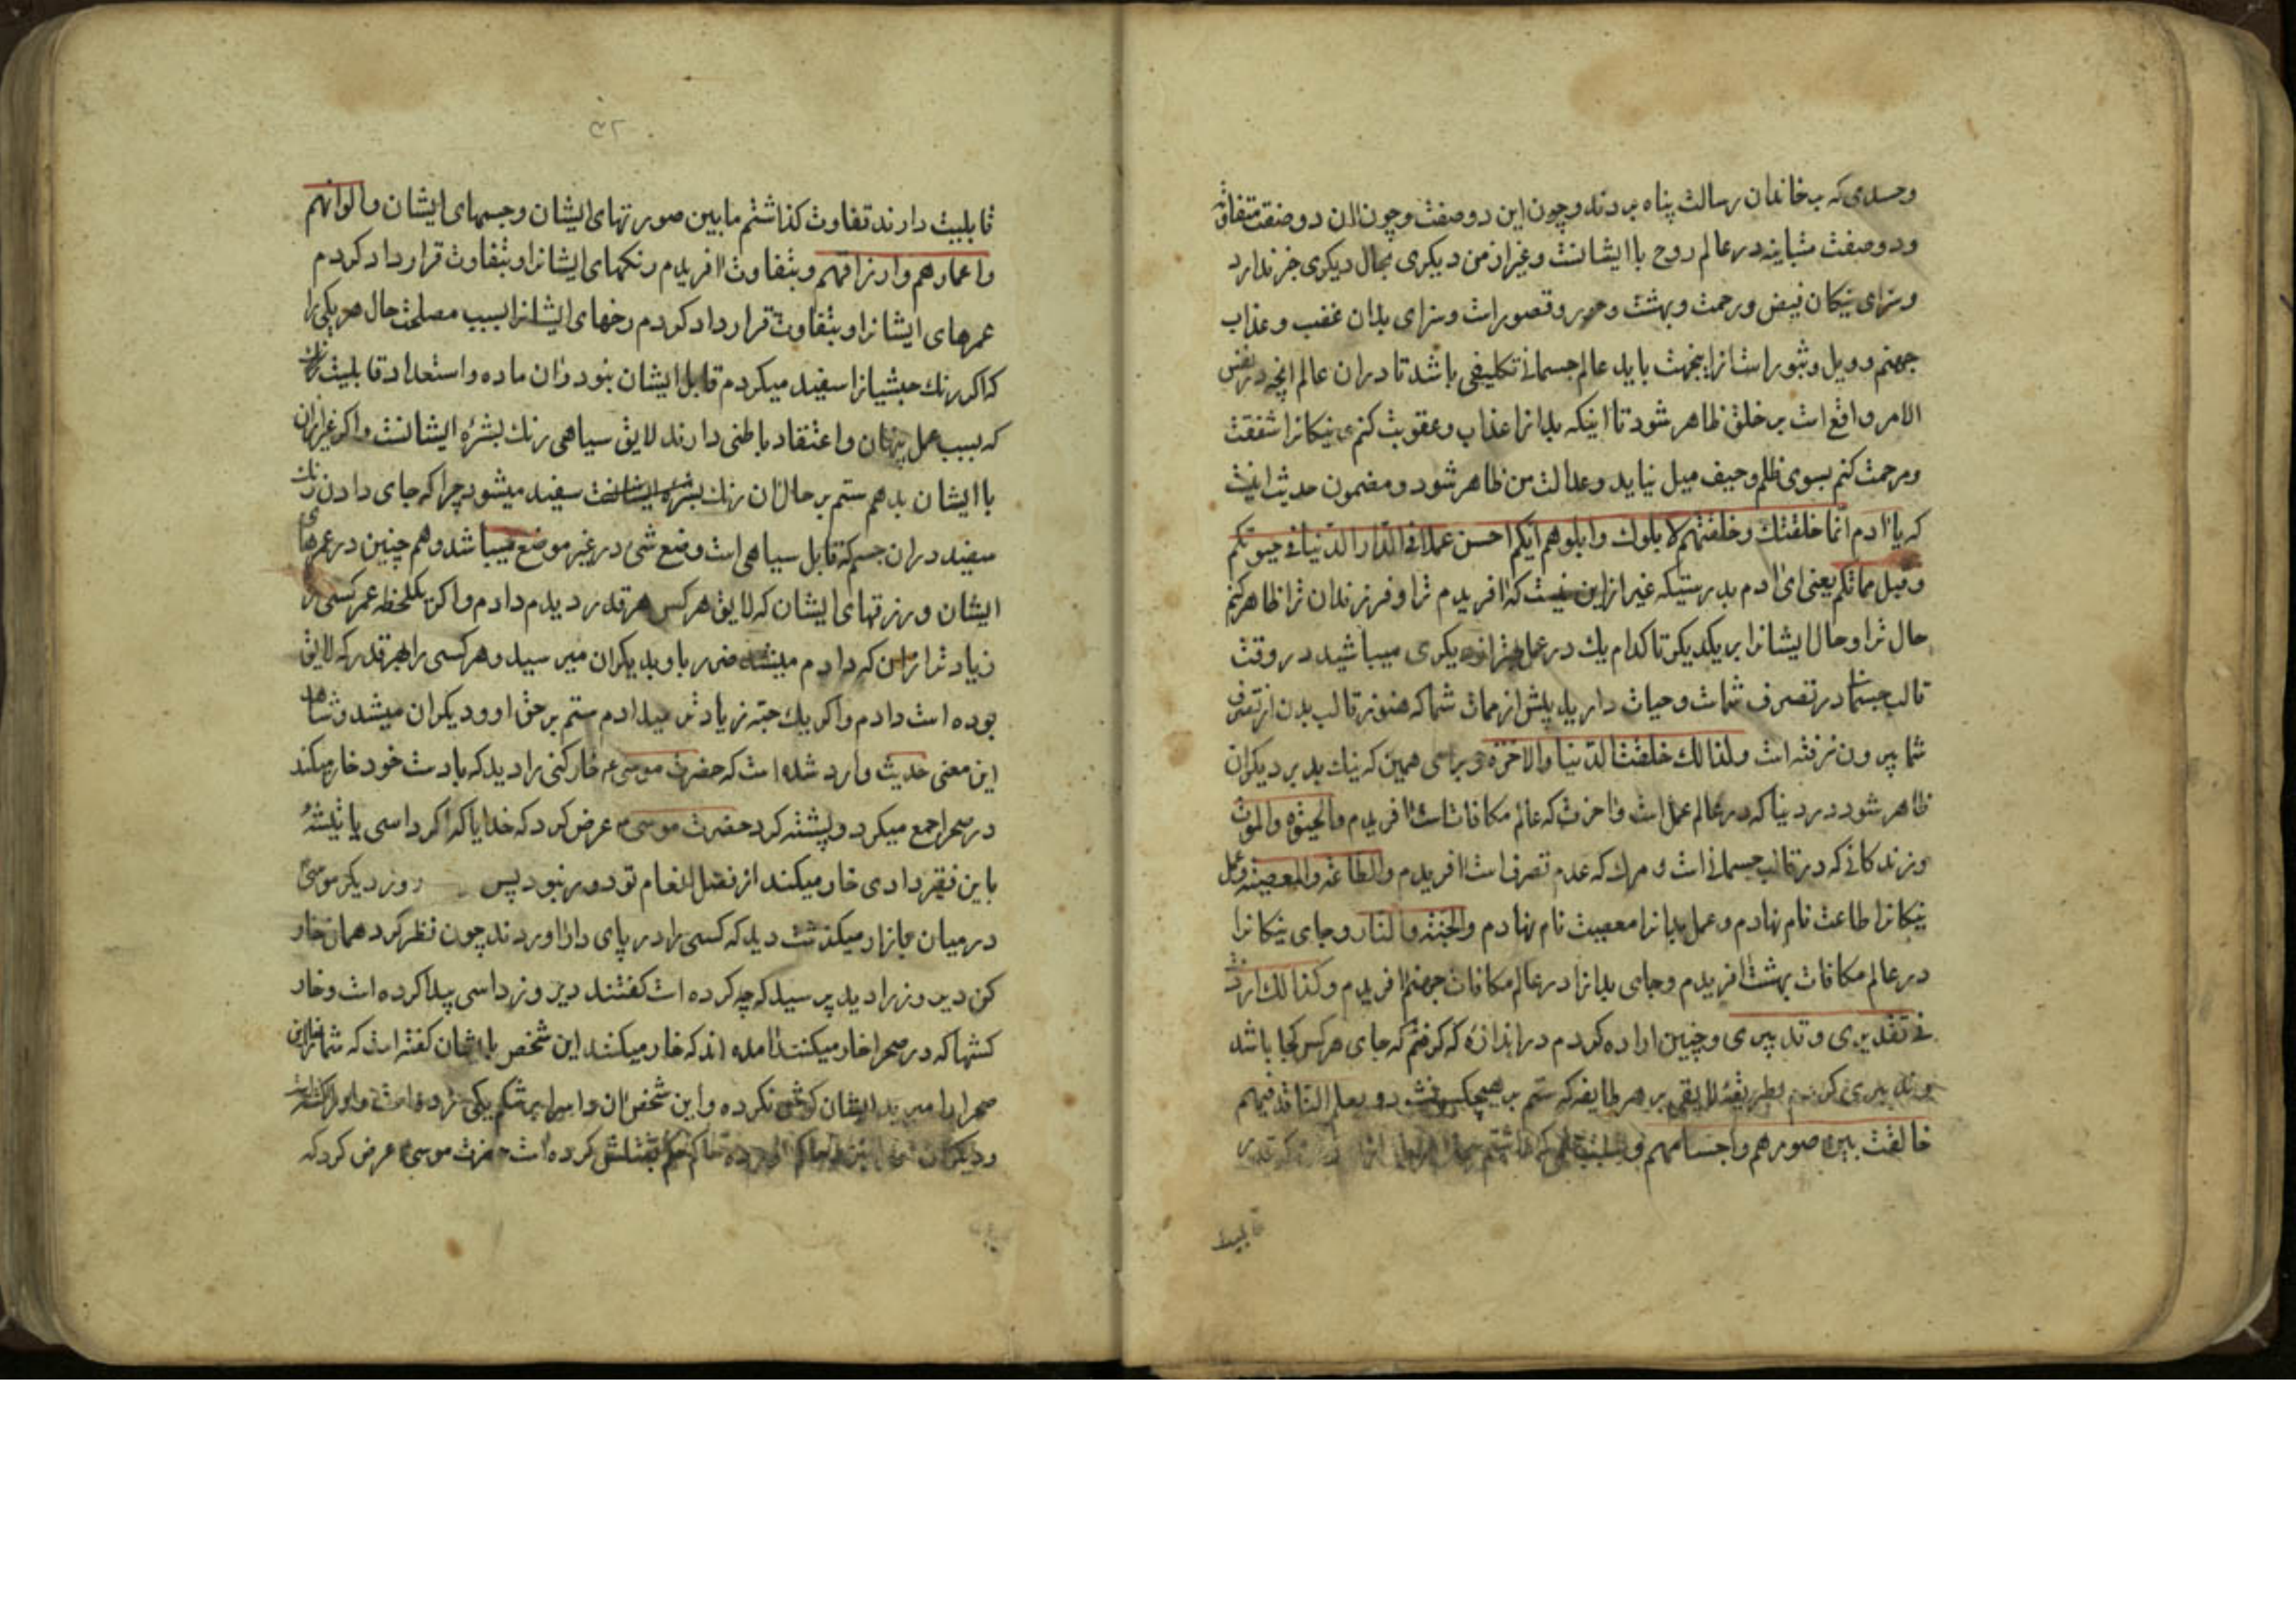 وحسدی که بخاندان رسالت پناه بردند و چون این دو صفت و چون ان دو صفت متفاوته
و دو صفت متباینه در عالم روح با ایشانست و غیر از من دیکری بحال دیکری خبر ندارد
و سزای نیکان فیض و رحمت و بهشت و حور و قصور است و سزای بدان غضب و عذاب
جهنم و ویل و ثبور است از اینجهت باید عالم جسمانی تکلیفی باشد تا در ان عالم انچه در نفس
الامر واقع است بر خلق ظاهر شود تا اینکه بدانرا عذاب و عقوبت کنم نیکانرا شفقت
و مرحمت کنم بسوی ظلم و حیف میل نیاید و عدالت من ظاهر شود و مضمون حدیث اینست
که یا ادم انما خلقتك و خلقتهم لابلوك و ابلوهم ایکم احسن عملا فی الدار الدنیا فی حیوتکم
و قبل مماتکم یعنی ای ادم بدرستیکه غیر از این نیست که افریدم ترا و فرزندان ترا ظاهر کنم
حال ترا و حال ایشانرا بر یکدیکر تا کدام یك در عمل دیکری میباشید در وقت
قالب جسمانی در تصرف شماست و حیات دارید پیش از ممات شما که هنوز قالب بدن از تصرف
شما بیرون نرفته است و لذالك خلقت الدنیا و الاخرة و برای همین که نیك بد بر دیکران
ظاهر شود در دنیا که در عالم عمل است و اخرت که عالم مکافات است افریدم و الحیوة و الموت
و زندکانی که در قالب جسمانی است و مرك که عدم تصرف است افریدم و الطاعة و المعصیة و عمل
نیکانرا طاعت نام نهادم و عمل بدانرا معصیت نام نهادم و الجنة و النار و جای نیکانرا
در عالم مکافات بهشت افریدم و جای بدانرا در عالم مکافات جهنم افریدم و کذالك اردت
فی تقدیری و تدبیری و چنین اراده کردم در اندازهٔ که کرفتم که جای هر کس کجا باشد
و تدبیری کردم بطریقهٔ لایقی بر هر طایفه که ستم بر هیچکس نشد و بعلم النافذ فیهم
خالفت بین صورهم و اجسامهم
قابلیت
قابلیت دارند تفاوت کذاشتم مابین صورتهای ایشان و جسمهای ایشان و الوانهم
و اعمارهم و ارزاقهم و بتفاوت افریدم رنکهای ایشانرا و بتفاوت قرار داد کردم
عمرهای ایشانرا و بتفاوت قرار داد کردم رزقهای ایشانرا بسبب مصلحت حال هر یکی را
که اکر رنك حبشیانرا سفید میکردم قابل ایشان نبود و ان ماده و استعداد قابلیت رنك
که بسبب عمل پنهان و اعتقاد باطنی دارند لایق سیاهی رنك بشرهٔ ایشانست و اکر غیر از ان
با ایشان بدهم ستم بر حال ان رنك بشره ایشانست سفید میشود چرا که جای دادن رنك
سفید در ان جسم که قابل سیاهی است وضع شئ در غیر موضع میباشد و هم چنین در عمرهای
ایشان و رزقهای ایشان که لایق هر کس هر قدر دیدم دادم و اکر یکلحظه عمر کسی را
زیادتر از ان که دادم میشد ضرر باو بدیکران میرسید و هر کسی را بهر قدر که لایق
بوده است دادم و اکر یك حبه زیادتر میدادم ستم بر حق او و دیکران میشد و شاهد
این معنی حدیث وارد شده است که حضرت موسی ع خارکنی را دید که بادست خود خار میکند
در صحرا جمع میکرد و پشته کرد حضرت موسی م عرض کرد که خدایا که اکر داسی یا تیشهٔ
باین فقیر دادی خار میکند از فضل انعام تو دور نبود پس روز دیکر موسی
در میان بازار میکذشت دید که کسی را در پای دار اوردند چون نظر کرد همان خار
کن دیروز را دید پرسید که چه کرده است کفتند دیروز داسی پیدا کرده است و خار
کشها که در صحرا خار میکنند امده اند که خار میکنند این شخص با ایشان کفته است که شما خار این
صحرا را مبرید ایشان کوش نکرده و این شخص ان داس را بر شکم یکی زده است و او را کشته است
و دیکران حاکم حکم بقتلش کرده است حضرت موسی عرض کرد که